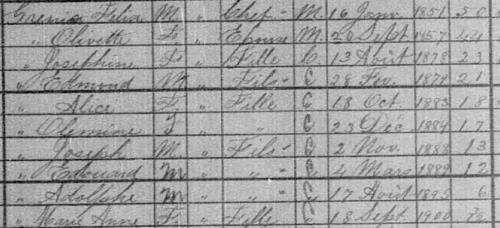 Grenier Felix M " Chef - M 16 Janv. 1851 50
" Olivette F " Epouse M 20 Sept 1857 44
" Josephine F " Fille C 13 Août 1878 23
" Edmond M " Fils - C 28 Fev. 1879 21
" Alice F " Fille C 18 Oct. 1883 18
" Clemine F " " C 23 Déc 1884 17
" Joseph M " Fils - C 2 Nov. 1888 13
" Edouard M " " - C 4 Mars 1889 12
" Adolphe M " " - C 17 Août 1895 6
" Marie Anne F " Fille C 18 Sept 1900